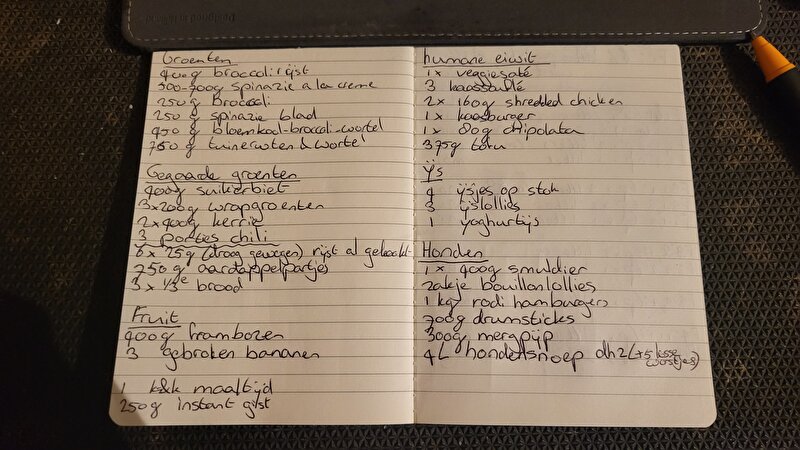 Designed in Holland
Groenten
400g broccolirijst
500-700g spinazie a la creme
250g Broccoli
250g spinazie blad
450g bloemkool-broccoli-wortel
750g tuinerwten & wortel
Gegaarde groenten
400g suikerbiet
3x200g wrapgroenten
2x400g kerrie
3 porties chili
6x 75g (droog gewogen) rijst al gekookt
750g aardappelpartjes
3x 1/3e brood
Fruit
400g frambozen
3 gebroken bananen
1 k&k maaltijd
250g instant gist
humane eiwit
1x veggiesaté
3 kaassouflé
2x 160g shredded chicken
1x kaasburger
1x 80g chipolata
375g tofu
Ijs
4 ijsjes op stok
3 ijslollies
1 yoghurtijs
Honden
1x 400g smuldier
zakje bouillonlollies
1 kg rodi hamburgers
700g drumsticks
300g mergpijp
4L hondensnoep dh2 (+5 losse worstjes)